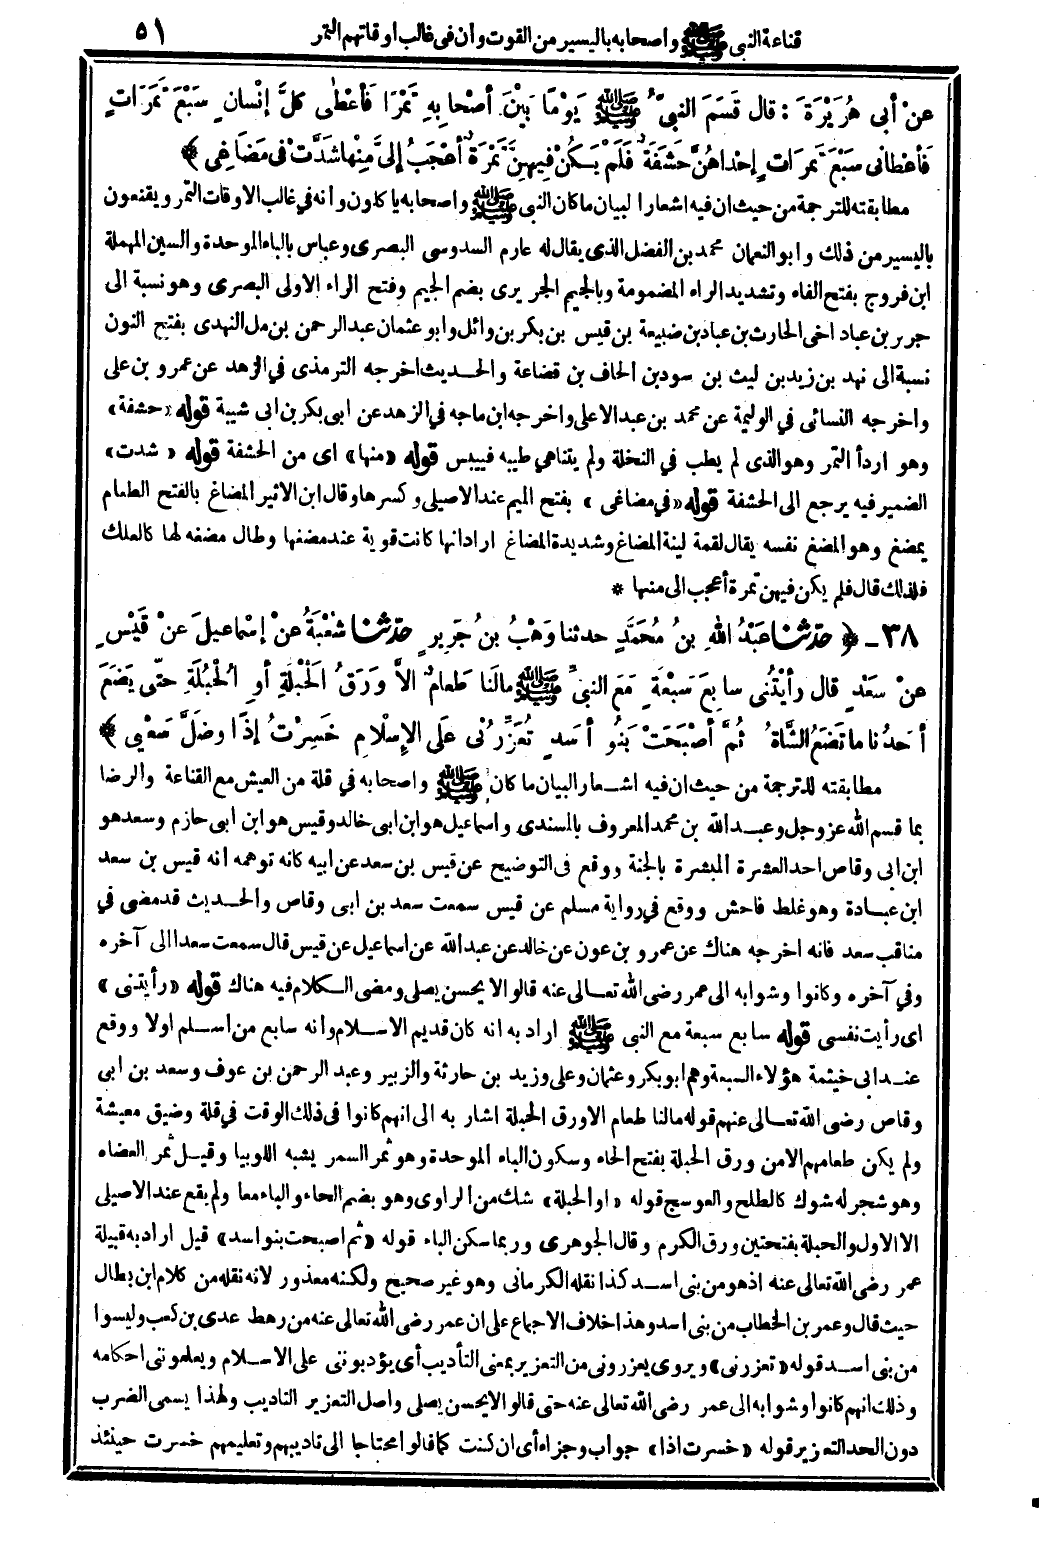 قناعة النبي ﷺ واصحابه باليسير من القوت وأن فى غالب اوقاتهم التمر ٥١
عنْ أبى هُرَيْرَةَ : قال قَسَمَ النبىُّ ﷺ يَوْمًا بَيْنَ أصْحابِهِ تَمْرًا فَأعْطٰى كلَّ إنْسانٍ سَبْعَ تَمَرَاتٍ
فَأعْطانى سَبْعَ تَمَراتٍ إحْداهُنَّ حَشَفَةٌ فَلَمْ يَكُنْ فِيهِنَّ تَمْرَةٌ أعْجَبُ إلىَّ مِنْها شَدَّتْ فى مَضَاغِى ﴾ *
مطابقته للترجمة من حيث ان فيه اشعارا لبيان ما كان النبى ﷺ واصحابه يأكلون وأنه في غالب الاوقات التمر ويقنعون
باليسير من ذلك وابو النعمان محمد بن الفضل الذى يقال له عارم السدوسى البصرى وعباس بالباء الموحدة والسين المهملة
ابن فروج بفتح الفاء وتشديد الراء المضمومة وبالجيم الجريرى بضم الجيم وفتح الراء الاولى البصرى وهو نسبة الى
جرير بن عباد اخى الحارث بن عباد بن ضبيعة بن قيس بن بكر بن وائل وابو عثمان عبد الرحمن بن مل النهدى بفتح النون
نسبة الى نهد بن زيد بن ليث بن سود بن الحاف بن قضاعة والحديث اخرجه الترمذى في الزهد عن عمرو بن على
واخرجه النسائى في الوليمة عن محمد بن عبد الاعلى واخرجه ابن ماجه في الزهد عن ابى بكر بن ابى شيبة قوله «حشفة»
وهو اردأ التمر وهو الذى لم يطب في النخلة ولم يتناهي طيبه فييبس قوله «منها» اى من الحشفة قوله «شدت»
الضمير فيه يرجع الى الحشفة قوله «في مضاغى» بفتح الميم عند الاصيلى وكسرها وقال ابن الاثير المضاغ بالفتح الطعام
يمضغ وهو المضغ نفسه يقال لقمة لينة المضاغ وشديدة المضاغ اراد انها كانت قوية عند مضغها وطال مضغه لها كالعلك
فلذلك قال فلم يكن فيهن تمرة أعجب الى منها *
٣٨ - ﴿ حدثنا عَبْدُ اللهِ بنُ مُحَمَّدٍ حدثنا وَهْبُ بنُ جَرِيرٍ حدثنا شُعْبَةُ عنْ إسْماعيلَ عنْ قَيْسٍ
عنْ سَعْدٍ قال رأيْتُنى سابِعَ سَبْعَةٍ مَعَ النبىِّ ﷺ مالَنا طَعامٌ الاَّ وَرَقُ الحَبْلَةِ أوِ الْحُبُلَةِ حتّى يَضَعَ
أحَدُنا ما تَضَعُ الشَّاةُ ثُمَّ أصْبَحَتْ بَنُو أسَدٍ تُعَزِّرُنى عَلَى الإسْلامِ خَسِرْتُ إذًا وضَلَّ سَعْيِى ﴾ *
مطابقته للترجمة من حيث ان فيه اشعار البيان ما كان ﷺ واصحابه في قلة من العيش مع القناعة والرضا
بما قسم الله عز وجل وعبد الله بن محمد المعروف بالمسندى واسماعيل هو ابن ابى خالد وقيس هو ابن ابى حازم وسعد هو
ابن ابى وقاص احد العشرة المبشرة بالجنة ووقع فى التوضيح عن قيس بن سعد عن ابيه كانه توهمه انه قيس بن سعد
ابن عبادة وهو غلط فاحش ووقع في رواية مسلم عن قيس سمعت سعد بن ابى وقاص والحديث قد مضى في
مناقب سعد فانه اخرجه هناك عن عمرو بن عون عن خالد عن عبد الله عن اسماعيل عن قيس قال سمعت سعدا الى آخره
وفي آخره وكانوا وشوا به الى عمر رضى الله تعالى عنه قالوا لا يحسن يصلى ومضى الكلام فيه هناك قوله «رأيتنى»
اى رأيت نفسى قوله سابع سبعة مع النبي ﷺ اراد به انه كان قديم الاسلام وانه سابع من اسلم اولا ووقع
عند ابى خيثمة هؤلاء السبعة وهم ابو بكر وعثمان وعلى وزيد بن حارثة والزبير وعبد الرحمن بن عوف وسعد بن ابى
وقاص رضى الله تعالى عنهم قوله مالنا طعام الا ورق الحبلة اشار به الى انهم كانوا فى ذلك الوقت في قلة وضيق معيشة
ولم يكن طعامهم الا من ورق الحبلة بفتح الحاء وسكون الباء الموحدة وهو ثمر السمر يشبه اللوبيا وقيل ثمر العضاه
وهو شجر له شوك كالطلح والعوسج قوله «او الحبلة» شك من الراوى وهو بضم الحاء والباء معا ولم يقع عند الاصيلى
الا الاول والحبلة بفتحتين ورق الكرم وقال الجوهرى وربما سكن الباء قوله «ثم اصبحت بنو اسد» قيل اراد به قبيلة
عمر رضى الله تعالى عنه اذ هو من بنى اسد كذا نقله الكرمانى وهو غير صحيح ولكنه معذور لانه نقله من كلام ابن بطال
حيث قال وعمر بن الخطاب من بنى اسد وهذا خلاف الاجماع على ان عمر رضى الله تعالى عنه من رهط عدى بن كعب وليسوا
من بنى اسد قوله «تعزرنى» ويروى يعزرونى من التعزير بمعنى التأديب أى يؤدبوننى على الاسلام ويعلموننى احكامه
وذلك انهم كانوا وشوا به الى عمر رضى الله تعالى عنه حتى قالوا لا يحسن يصلى واصل التعزير التاديب ولهذا يسمى الضرب
دون الحد التعزير قوله «خسرت اذا» جواب وجزاء أى ان كنت كما قالوا محتاجا الى تاديبهم وتعليمهم خسرت حينئذ